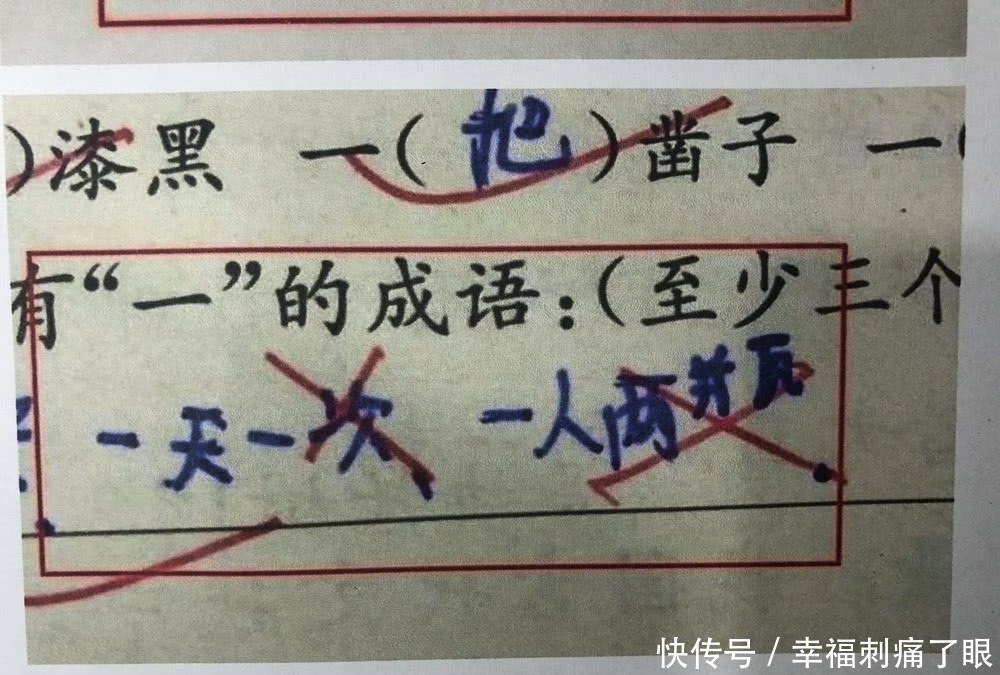 )漆黑 一(把)凿子 一(
有“一”的成语：(至少三个
一天一次 一人两并瓦
快传号 / 幸福刺痛了眼